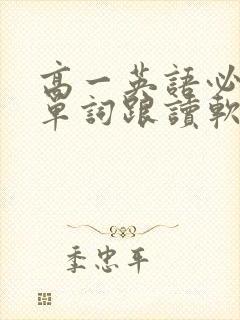 高一英語必
單詞跟讀軟
季忠平